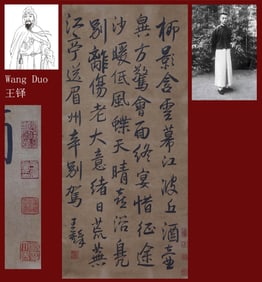 Wang Duo
王铎
柳影含雲幕江波近酒壺
異方驚會面終宴惜征途
沙暖低風蝶天晴喜浴鳧
別離傷老大意緒日荒蕪
江亭送眉州辛別駕 王鐸